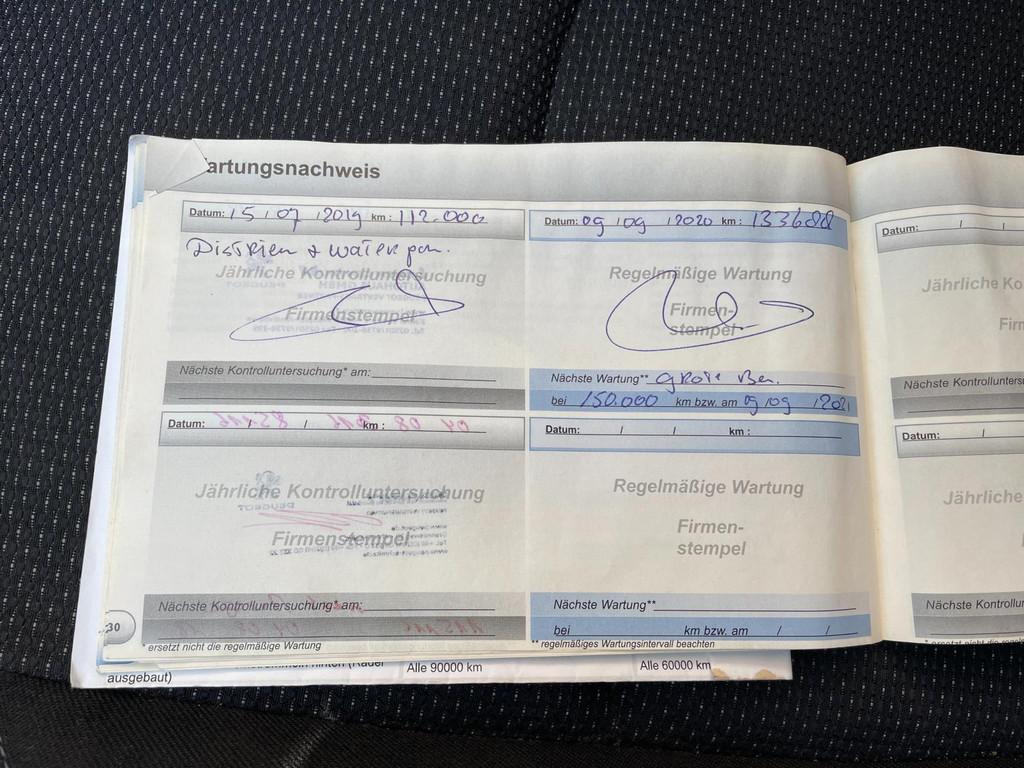 artungsnachweis
Datum: 15 / 07 / 2019 km : 112.000
Jährliche Kontrolluntersuchung
Firmenstempel
Nächste Kontrolluntersuchung* am:
Datum: 09 / 09 / 2020 km : 133688
Regelmäßige Wartung
Firmen-
stempel
Nächste Wartung**
bei 150.000 km bzw. am 09 / 09 / 2021
Datum: / / km :
Jährliche Kontrolluntersuchung
Firmenstempel
Nächste Kontrolluntersuchung* am:
* ersetzt nicht die regelmäßige Wartung
Datum: / / km :
Regelmäßige Wartung
Firmen-
stempel
Nächste Wartung**
bei km bzw. am / /
** regelmäßiges Wartungsintervall beachten
30
ausgebaut)
Alle 90000 km
Alle 60000 km
Datum: / /
Jährliche Ko
Firm
Nächste Kontrollunters
Datum: /
Jährliche
Nächste Kontrollu